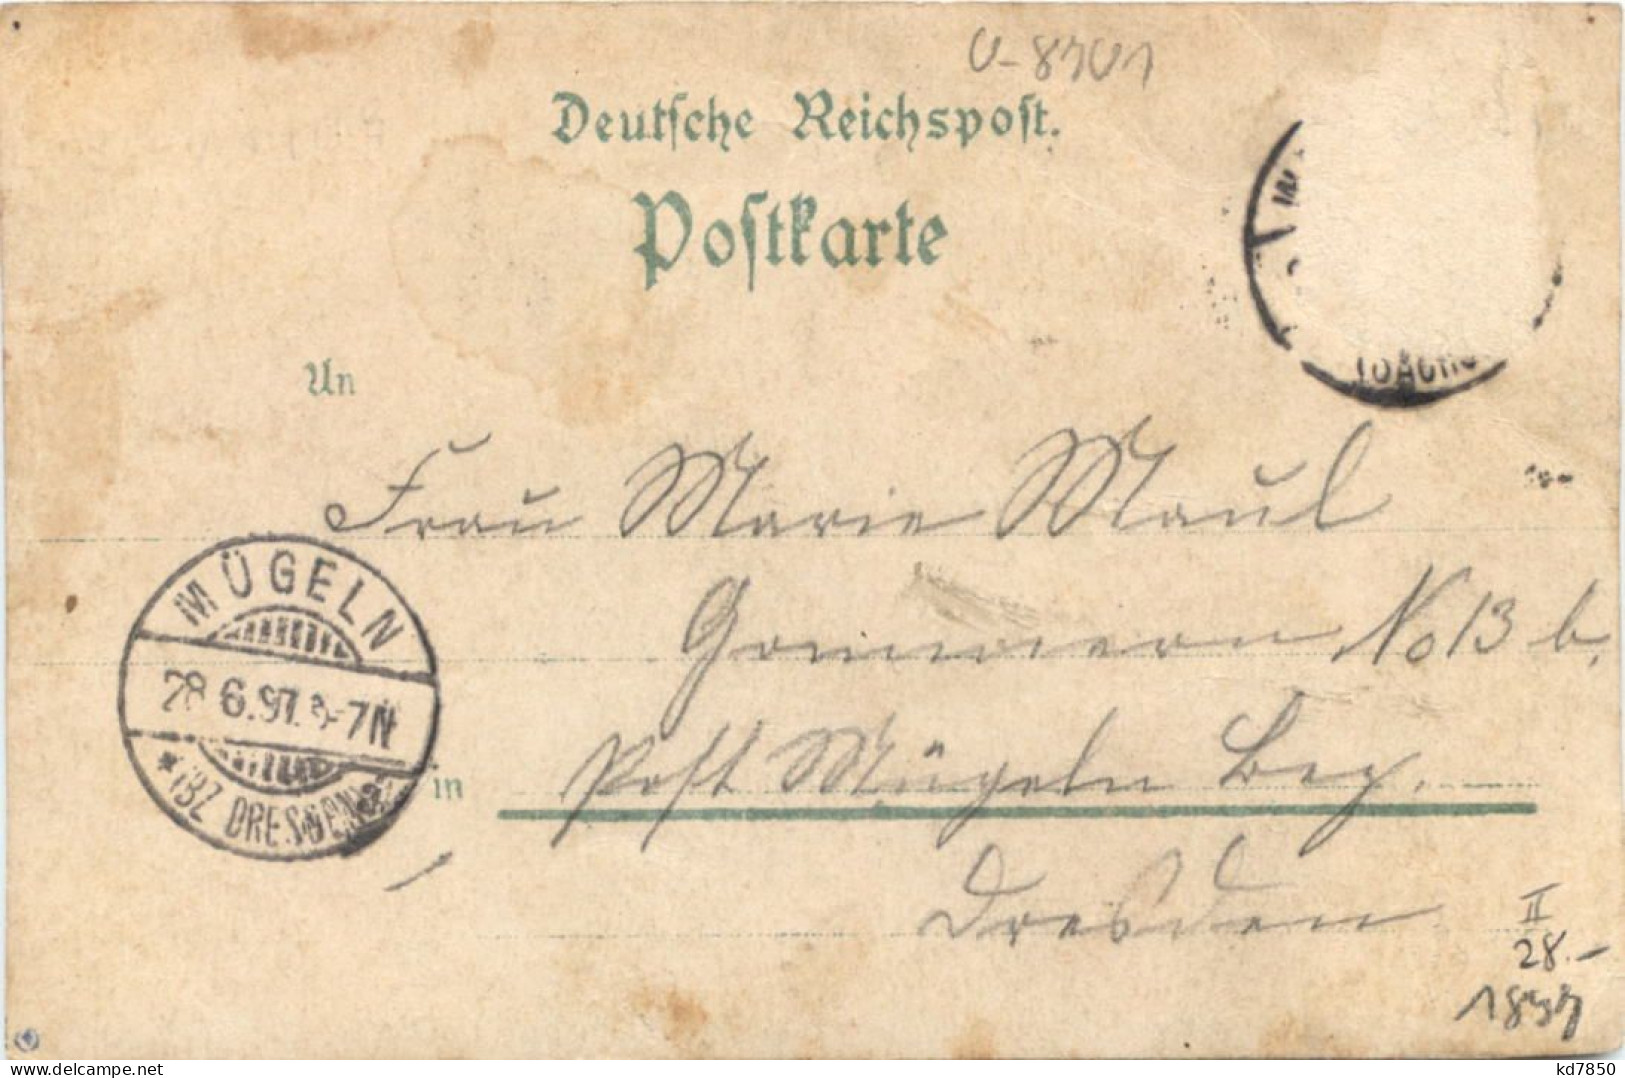 Deutsche Reichspost.
Postkarte
An
Frau Marie Maul
Gommern No 13 b,
in Post Mügeln Bez.
Dresden
MÜGELN
28 6.97. 6-7N
*(BZ DRESDEN)
II
28.-
1897
kd7850